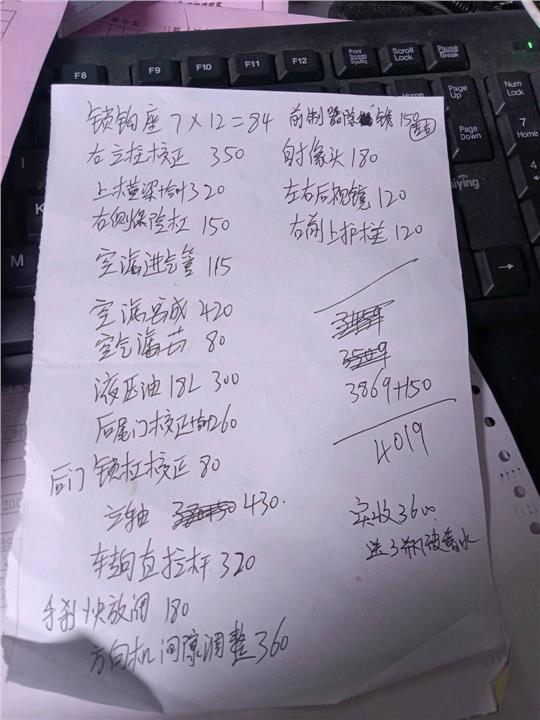 F8
F9
F10
F11
F12
Print Screen
SysRq
Scroll Lock
Pause
Break
锁钩座 7×12=84
右立柱校正 350
上横梁 320
右侧保险杠 150
空滤进气管 115
空滤总成 420
空气滤芯 80
液压油 18L 300
后尾门校正 260
后门 锁杠校正 80
立轴 430
转向直拉杆 320
手刹快放阀 180
方向机间隙调整 360
前制 150
头 180
左右后视镜 120
右前上护栏 120
3869+150
4019
实收 3600
送3瓶
Page Up
Page Down
Num Lock
7
Home
4